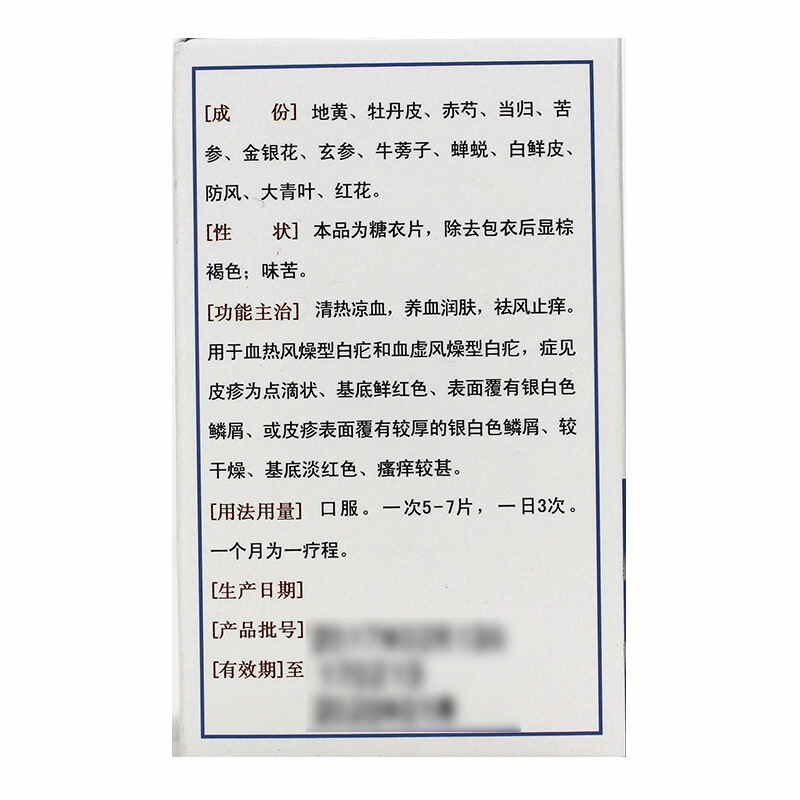 [成　份] 地黄、牡丹皮、赤芍、当归、苦
参、金银花、玄参、牛蒡子、蝉蜕、白鲜皮、
防风、大青叶、红花。
[性　状] 本品为糖衣片，除去包衣后显棕
褐色；味苦。
[功能主治] 清热凉血，养血润肤，祛风止痒。
用于血热风燥型白疕和血虚风燥型白疕，症见
皮疹为点滴状、基底鲜红色、表面覆有银白色
鳞屑、或皮疹表面覆有较厚的银白色鳞屑、较
干燥、基底淡红色、瘙痒较甚。
[用法用量] 口服。一次5-7片，一日3次。
一个月为一疗程。
[生产日期]
[产品批号]
[有效期]至